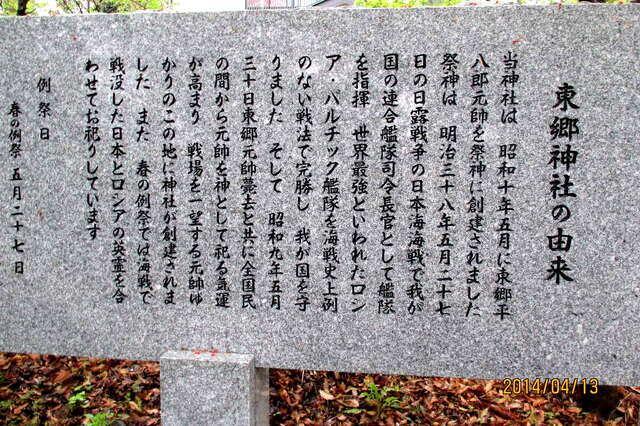 東郷神社の由来
当神社は 昭和十年五月に東郷平
八郎元帥を祭神に創建されました
祭神は 明治三十八年五月二十七
日の日露戦争の日本海海戦で我が
国の連合艦隊司令長官として艦隊
を指揮 世界最強といわれたロシ
ア・バルチック艦隊を海戦史上例
のない戦法で完勝し 我が国を守
りました そして 昭和九年五月
三十日東郷元帥薨去と共に全国民
の間から元帥を神として祀る気運
が高まり 戦場を一望する元帥ゆ
かりのこの地に神社が創建されま
した また 春の例祭では海戦で
戦没した日本とロシアの英霊を合
わせてお祀りしています
例祭日
春の例祭 五月二十七日
2014/04/13